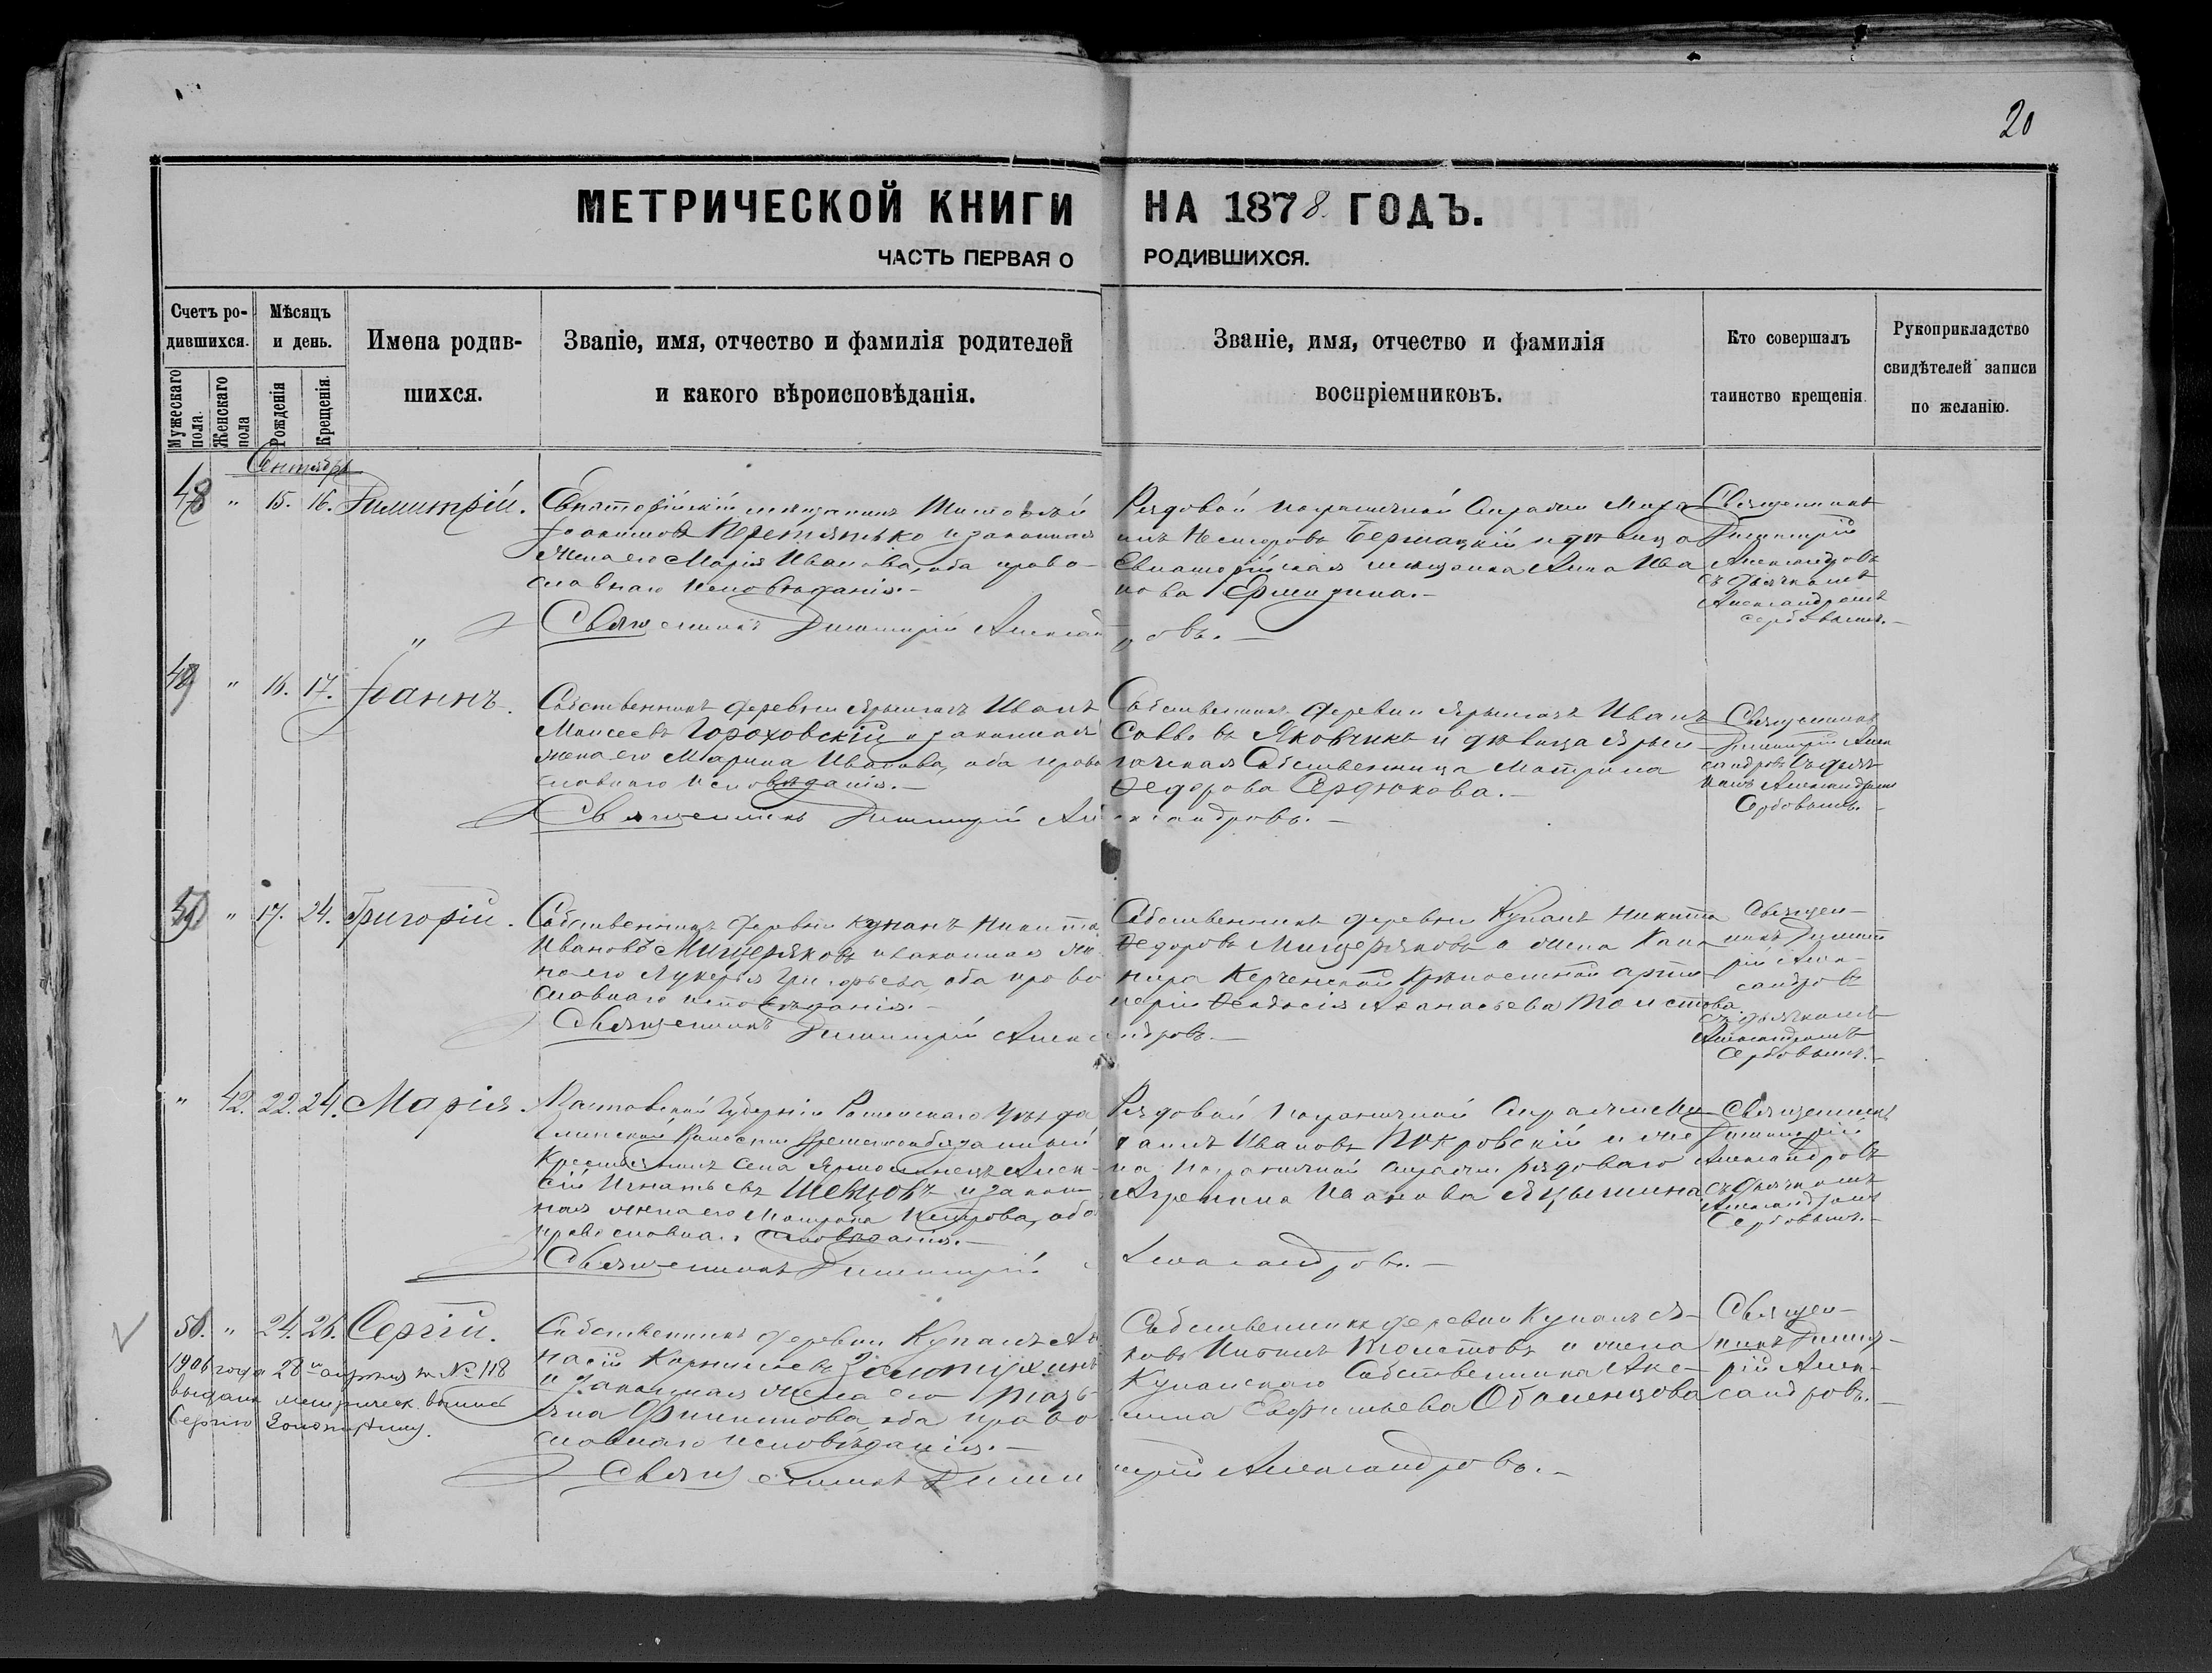 20
МЕТРИЧЕСКОЙ КНИГИ НА 1878 ГОДЪ.
ЧАСТЬ ПЕРВАЯ О РОДИВШИХСЯ.
Счетъ родившихся.
Мужескаго пола.
Женскаго пола
Мѣсяцъ и день.
Рожденія
Крещенія.
Имена родившихся.
Званіе, имя, отчество и фамилія родителей
и какого вѣроисповѣданія.
Званіе, имя, отчество и фамилія
воспріемниковъ.
Кто совершалъ
таинство крещенія.
Рукоприкладство
свидѣтелей записи
по желанію.
Сентябрь
48 " 15. 16. Димитрій.
Евпаторійскій мѣщанинъ Тимоѳей
Іоакимовъ Перетятько и законная
жена его Марія Иванова, оба право-
славнаго исповѣданія.-
Священникъ Димитрій Александровъ.-
Рядовой пограничной Стражи
Несторовъ и дѣвица
Евпаторійская мѣщанка Анна Ива
нова
Священникъ
Димитрій
Александровъ
съ дьячкомъ
Александромъ
Сербовымъ.-
49 " 16. 17. Іоаннъ.
Собственникъ деревни Иванъ
Моисеевъ Гороховскій и законная
жена его Марина Иванова, оба право
славнаго исповѣданія.-
Священникъ Димитрій Александровъ.-
Собственникъ деревни Иванъ
Саввовъ Яковчикъ и дѣвица
Собственница Матрона
Ѳедорова Сердюкова.-
Священникъ
Димитрій Алек
сандровъ съ дьяч
комъ Александромъ
Сербовымъ.-
50 " 17. 24. Григорій.
Собственникъ деревни Купань Никита
Ивановъ Мищеряковъ и законная же
на его Лукерья Григорьева, оба право
славнаго исповѣданія.-
Священникъ Димитрій Александровъ.-
Собственникъ деревни Купань Никита
Ѳедоровъ Мищеряковъ и жена Кано
нира Керченской Крѣпостной арти
леріи Ѳеодосія Аѳанасьева Толстова
Священ-
никъ Димит
рій Алек-
сандровъ
съ дьячкомъ
Александромъ
Сербовымъ.-
" 42. 22. 24. Марія.
Полтавской Губерніи Роменскаго Уѣзда
Глинской Волости временнообязанный
Крестьянинъ села Алек-
сій Игнатьевъ Шевцовъ и закон
ная жена его Матрона Петрова, оба
православнаго исповѣданія.-
Священникъ Димитрій Александровъ.-
Рядовой пограничной Стражи Ми
хаилъ Ивановъ Покровскій и же
на пограничной стражи рядоваго
Агрепина Иванова Яцышина
Священникъ
Димитрій
Александровъ
съ дьячкомъ
Александромъ
Сербовымъ.-
51. " 24. 26. Сергій.
1906 года 28го апрѣля за № 118
выдана метрическ. выпись
Сергію Золотухину.
Собственникъ деревни Купань
Корниліевъ Золотухинъ
и законная жена его Тать-
яна Филиппова, оба право
славнаго исповѣданія.-
Священникъ Димитрій Александровъ.-
Собственникъ деревни Купань Я-
ковъ Толстовъ и жена
Купанскаго Собственника Аку-
лина Евфимьева Оболенцова
Священ-
никъ Димит-
рій Алек-
сандровъ.-